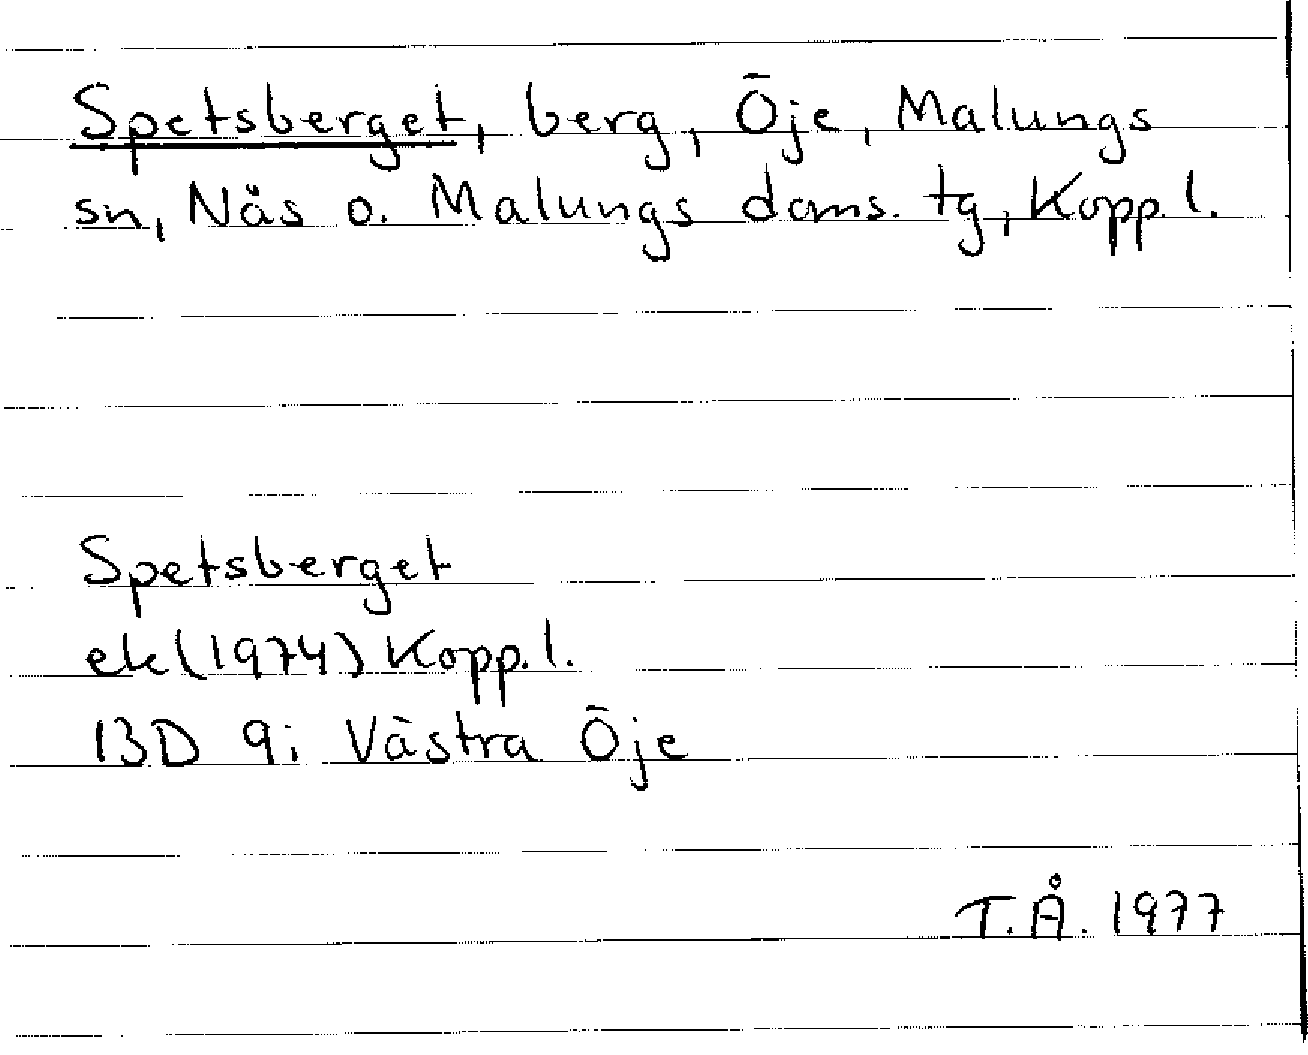 Spetsberget, berg, Öje, Malungs
sn, Näs o. Malungs doms. tg, Kopp. l.
Spetsberget
ek (1974) Kopp. l.
13D 9i Västra Öje
T.Å. 1977